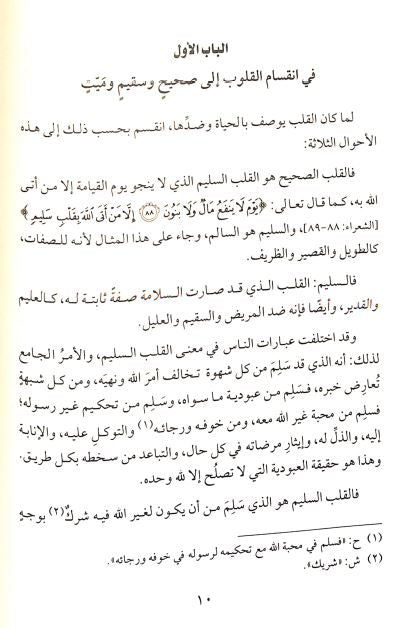 الباب الأول
في انقسام القلوب إلى صحيحٍ وسقيمٍ ومَيّتٍ
لما كان القلب يوصف بالحياة وضدِّها، انقسم بحسب ذلك إلى هذه
الأحوال الثلاثة:
فالقلب الصحيح هو القلب السليم الذي لا ينجو يوم القيامة إلا من أتى
الله به، كما قال تعالى: ﴿يَوْمَ لَا يَنفَعُ مَالٌ وَلَا بَنُونَ ٨٨ إِلَّا مَنْ أَتَى اللَّهَ بِقَلْبٍ سَلِيمٍ﴾
[الشعراء: ٨٨-٨٩]، والسليم هو السالم، وجاء على هذا المثال لأنه للصفات،
كالطويل والقصير والظريف.
فالسليم: القلب الذي قد صارت السلامة صفةً ثابتة له، كالعليم
والقدير، وأيضًا فإنه ضد المريض والسقيم والعليل.
وقد اختلفت عبارات الناس في معنى القلب السليم، والأمرُ الجامع
لذلك: أنه الذي قد سَلِمَ من كل شهوة تخالف أمرَ الله ونهيَه، ومن كل شبهةٍ
تُعارِض خبره، فسَلِم من عبودية ما سواه، وسَلِم من تحكيم غير رسوله؛
فسلِم من محبة غير الله معه، ومن خوفه ورجائه(١) والتوكلِ عليه، والإنابة
إليه، والذلِّ له، وإيثارِ مرضاته في كل حال، والتباعد من سخطه بكل طريق.
وهذا هو حقيقة العبودية التي لا تصلُح إلا لله وحده.
فالقلب السليم هو الذي سَلِمَ من أن يكون لغير الله فيه شركٌ(٢) بوجهٍ
(١) ح: «فسلم في محبة الله مع تحكيمه لرسوله في خوفه ورجائه».
(٢) ش: «شريك».
١٠